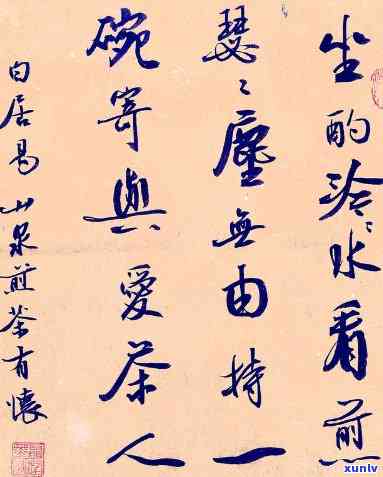 坐酌泠〻水看煎
瑟〻塵無由持一
碗寄與愛茶人
白居易山泉煎茶有懷
xunlv